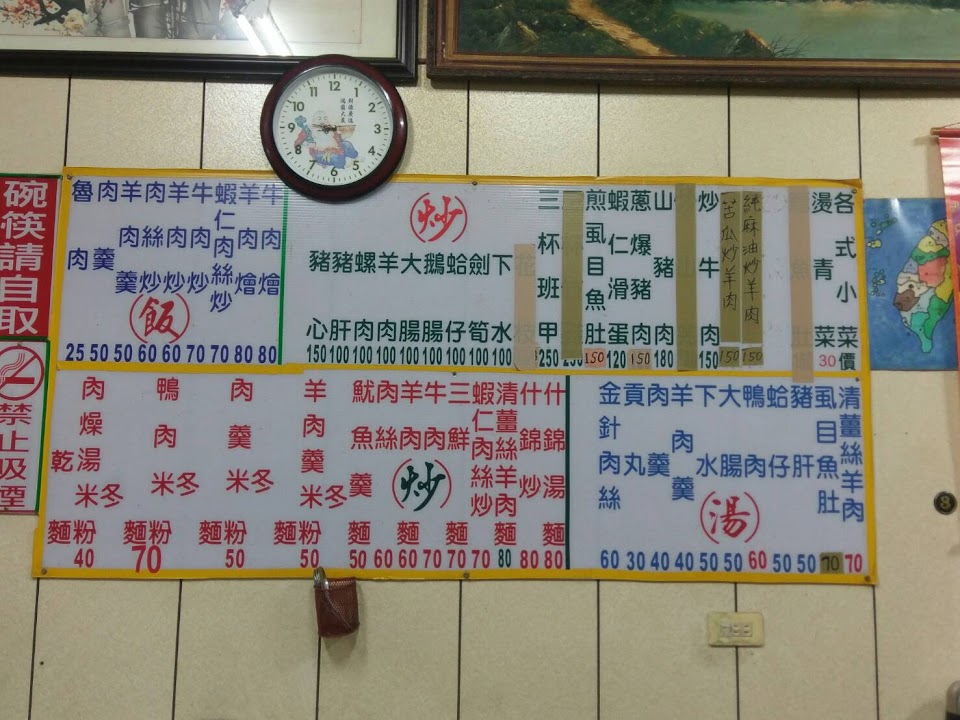 12
1
2
3
4
5
6
7
8
9
10
11
碗筷請自取
禁止吸煙
飯
魯肉 25
肉羹 50
羊肉羹 50
肉絲炒 60
羊肉炒 60
牛肉炒 70
蝦仁肉絲炒 70
羊肉燴 80
牛肉燴 80
炒
豬心 150
豬肝 100
螺肉 100
羊肉 100
大腸 100
鵝腸 100
蛤仔 100
劍筍 100
下水 100
花枝
三杯班甲 250
煎虱目魚肚 150
蝦仁滑蛋 120
蔥爆豬肉 150
山豬肉 180
炒牛肉 150
苦瓜炒羊肉 150
純麻油炒羊肉 150
燙青菜 30
各式小菜價
肉燥乾湯米冬麵粉 40
鴨肉米冬麵粉 70
肉羹米冬麵粉 50
羊肉羹米冬麵粉 50
炒
魷魚羹麵 50
肉絲麵 60
羊肉麵 60
牛肉麵 70
三鮮麵 70
蝦仁肉絲炒麵 70
清薑絲羊肉麵 80
什錦炒麵 80
什錦湯麵 80
湯
金針肉絲 60
貢丸 30
肉羹 40
羊肉羹 40
下水 50
大腸 50
鴨肉 60
蛤仔 50
豬肝 50
虱目魚肚 70
清薑絲羊肉 70
8